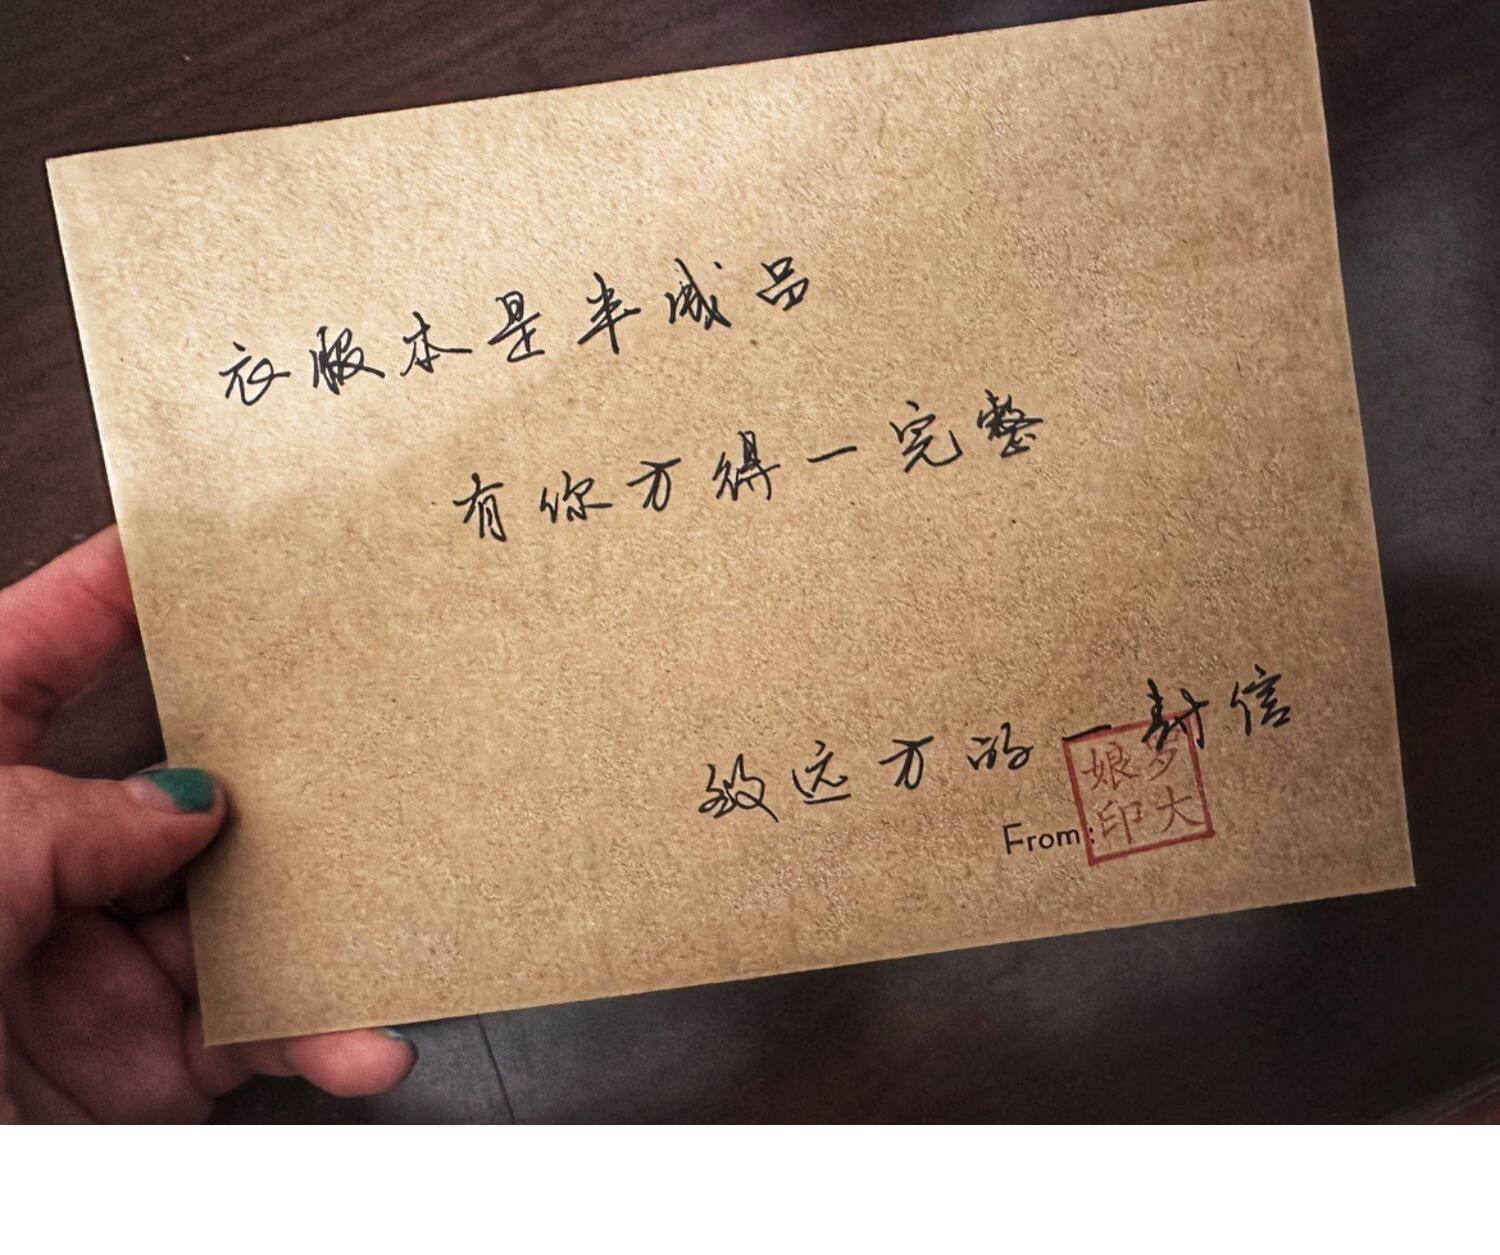 衣服本是半成品
有你方得一完整
致远方的一封信
From:
罗大娘印